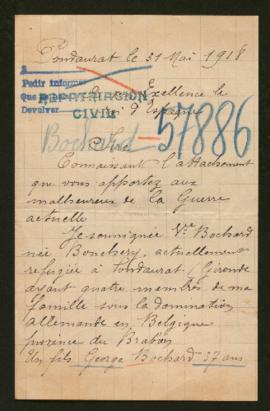 Pondaurat le 31 Mai 1918
A
Pedir informe
Que se
Devolver
REPATRIACION
CIVIL
Excellence le
Roi d'Espagne
Bochard - 57886
Sire
Connaissant l'attachement
que vous apportez aux
malheureux de la Guerre
actuelle
Je soussignée Vve Bochard
née Bouchery, actuellement
refugiée à Pondaurat (Gironde
ayant quatre membres de ma
famille sous la domination
allemande en Belgique
province du Brabant
Un fils George Bochard 37 ans